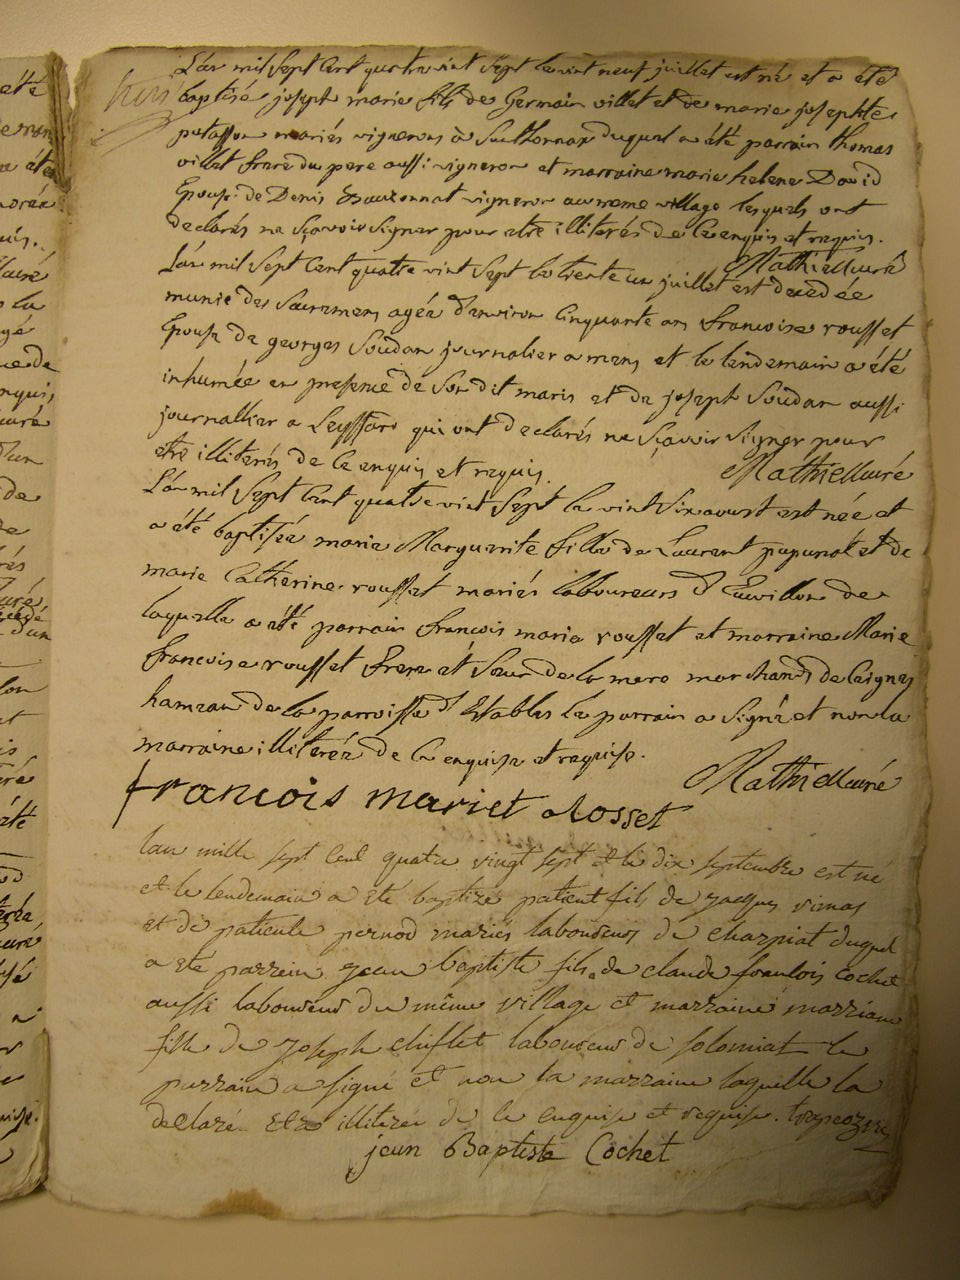 L'an mil sept cent quatre vint sept le vint neuf juillet est né et a été
baptisé joseph marie fils de Germain villet et de marie josephte
mariés vignerons à duquel a été parrain thomas
villet frere du pere aussi vigneron et marraine marie helene David
Epouse de Denis vigneron au meme village lesquels ont
declarés ne sçavoir signer pour etre illiterés de ce enquis et requis.
Mathieu curé
L'an mil sept cent quatre vint sept le trente un juillet est decedée
munie des sacremens agée d'environ cinquante ans francoise rousset
Epouse de georges Soudan journalier a mens et le lendemain a été
inhumée en presence de son dit maris et de joseph Soudan aussi
journallier a Leyssard qui ont declarés ne sçavoir signer pour
etre illiterés de ce enquis et requis.
Mathieu curé
L'an mil sept cent quatre vint sept le vint six aoust est née et
a été baptisée marie Marguerite fille de Laurent papunat et de
marie Catherine rousset mariés laboureurs d' de
laquelle a été parrain françois marie rousset et marraine Marie
francoise rousset frere et soeur de la mere marchands de Ceignes
hameau de la parroisse d'Etables le parrain a signé et non la
marraine illiterée de ce enquise et requise.
Mathieu curé
francois mariet Rosset
lan mille sept cent quatre vingt sept et le dix septembre est né
et le lendemain a eté baptizé patient fils de jacques vimas
et de paticule pernod mariés laboureurs de charpiat duquel
a eté parrain jean baptiste fils de claude francois cochet
aussi laboureur du même village et marraine marriane
fille de joseph chiflet laboureur de solomiat le
parrain a signé et non la marraine laquelle la
declaré etre illiterée de ce enquise et requise.
jean Baptiste Cochet